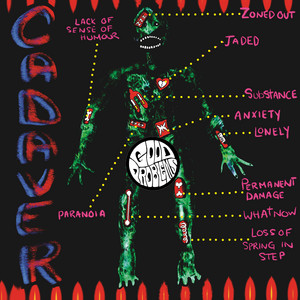 CADAVER
LACK OF
SENSE OF
HUMOUR
ZONED OUT
JADED
SUBSTANCE
ANXIETY
LONELY
GOOD
PROBLEMS
PERMANENT
DAMAGE
PARANOIA
WHAT NOW
LOSS OF
SPRING IN
STEP